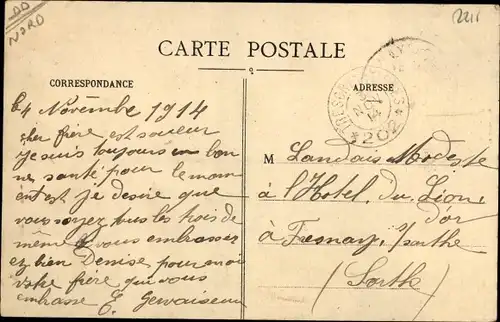 DD
NORD
2211
CARTE POSTALE
CORRESPONDANCE
ADRESSE
TRESOR
* 202 *
le 4 Novembre 1914
cher frère est soueur
je suis toujours en bon
ne santé pour le mom
ent est je desire que
vous soyez tous les trois de
même vous embrasser
ez bien Denise pour moi
votre frère qui vous
embrasse E. Gervaiseau
M Landais Modeste
à l'Hotel du Lion
d'or
à Fresnay s/sarthe
(Sarthe)